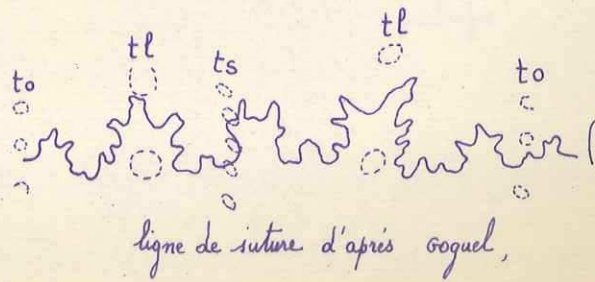 to tl ts tl to
ligne de suture d'après Goguel,